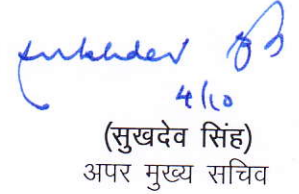 sukhdev
4/10
(सुखदेव सिंह)
अपर मुख्य सचिव